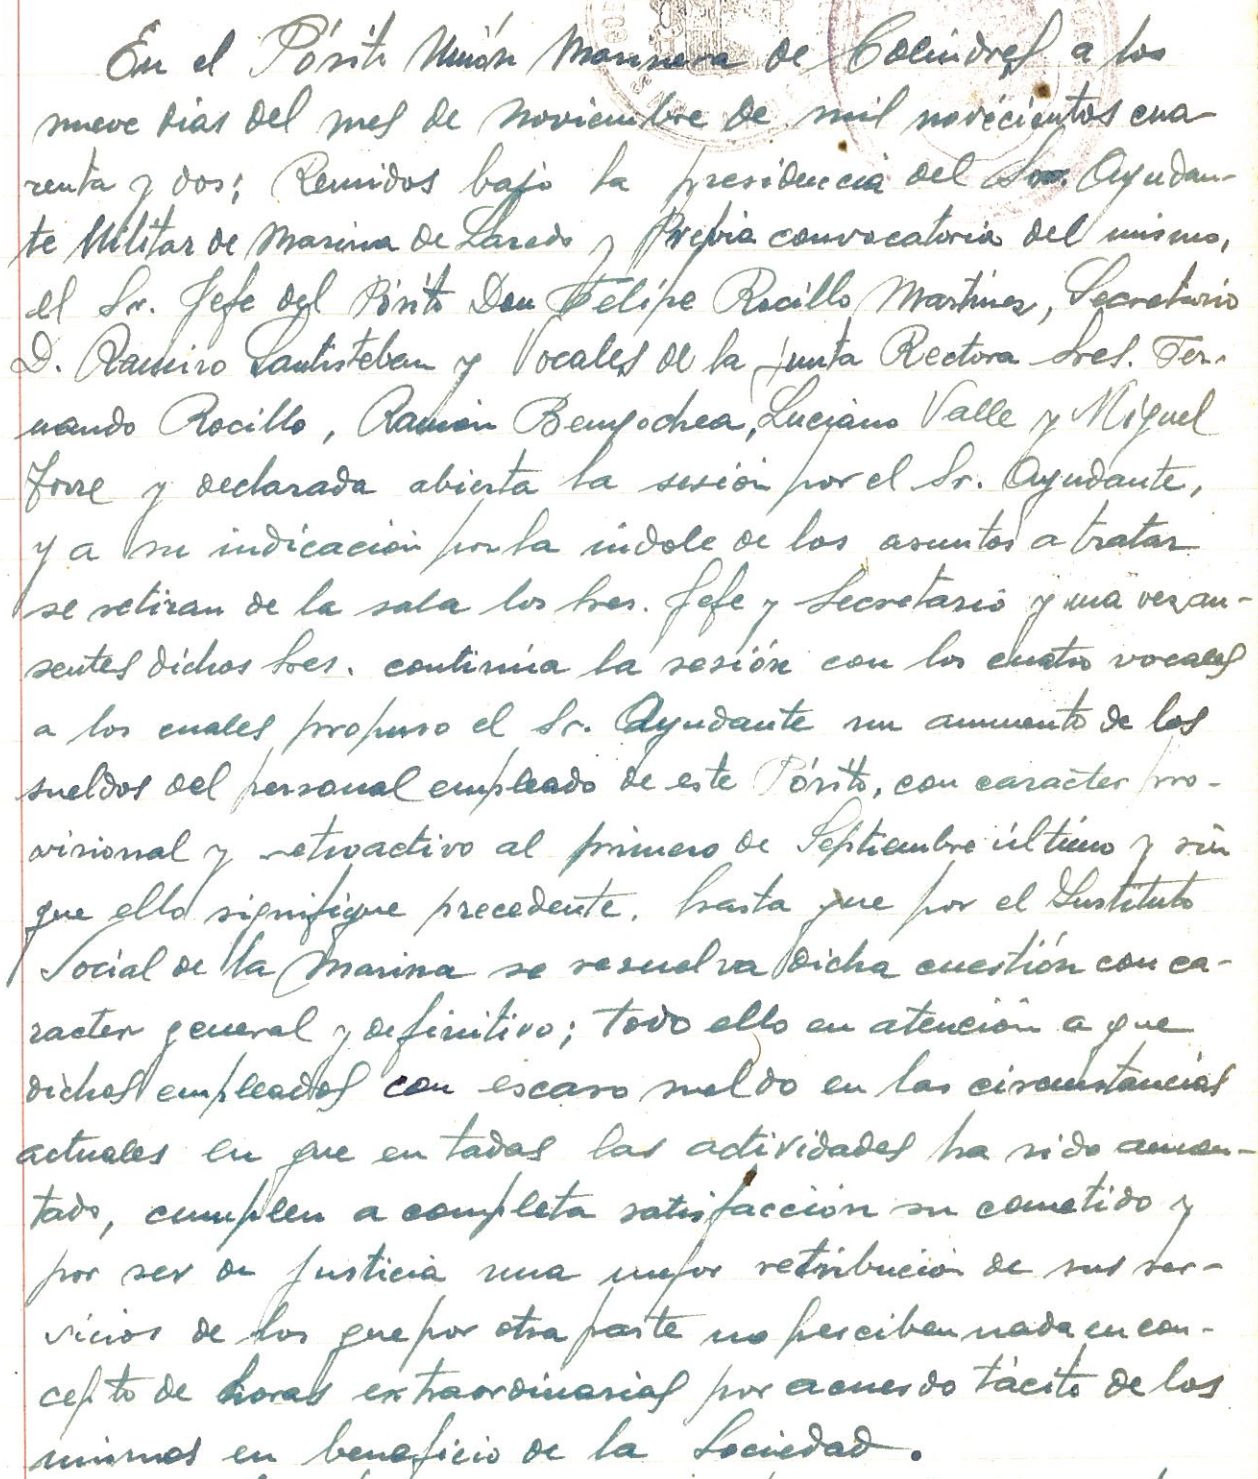 En el Pósito Unión Marinera de Colindres a los
nueve dias del mes de Noviembre de mil novecientos cua-
renta y dos; Reunidos bajo la presidencia del Sr. Ayudan-
te Militar de Marina de Laredo y previa convocatoria del mismo,
el Sr. Jefe del Pósito Don Felipe Rocillo Martinez, Secretario
D. Ramiro Santisteban y Vocales de la junta Rectora Sres. Fer-
nando Rocillo, Ramón Bengochea, Luciano Valle y Miguel
Torre y declarada abierta la sesión por el Sr. Ayudante,
y a su indicación por la indole de los asuntos a tratar
se retiran de la sala los Sres. Jefe y Secretario y una vez au-
sentes dichos Sres. continúa la sesión con los cuatro vocales
a los cuales propuso el Sr. Ayudante un aumento de los
sueldos del personal empleado de este Pósito, con caracter pro-
visional y retroactivo al primero de Septiembre último y sin
que ello signifique precedente. hasta que por el Instituto
Social de la Marina se resuelva dicha cuestión con ca-
racter general y definitivo; todo ello en atención a que
dichos empleados con escaso sueldo en las circunstancias
actuales en que en todas las actividades ha sido aumen-
tado, cumplen a completa satisfacción su cometido y
por ser de justicia una mejor retribución de sus ser-
vicios de los que por otra parte no perciben nada en con-
cepto de horas extraordinarias por acuerdo tácito de los
mismos en beneficio de la Sociedad.